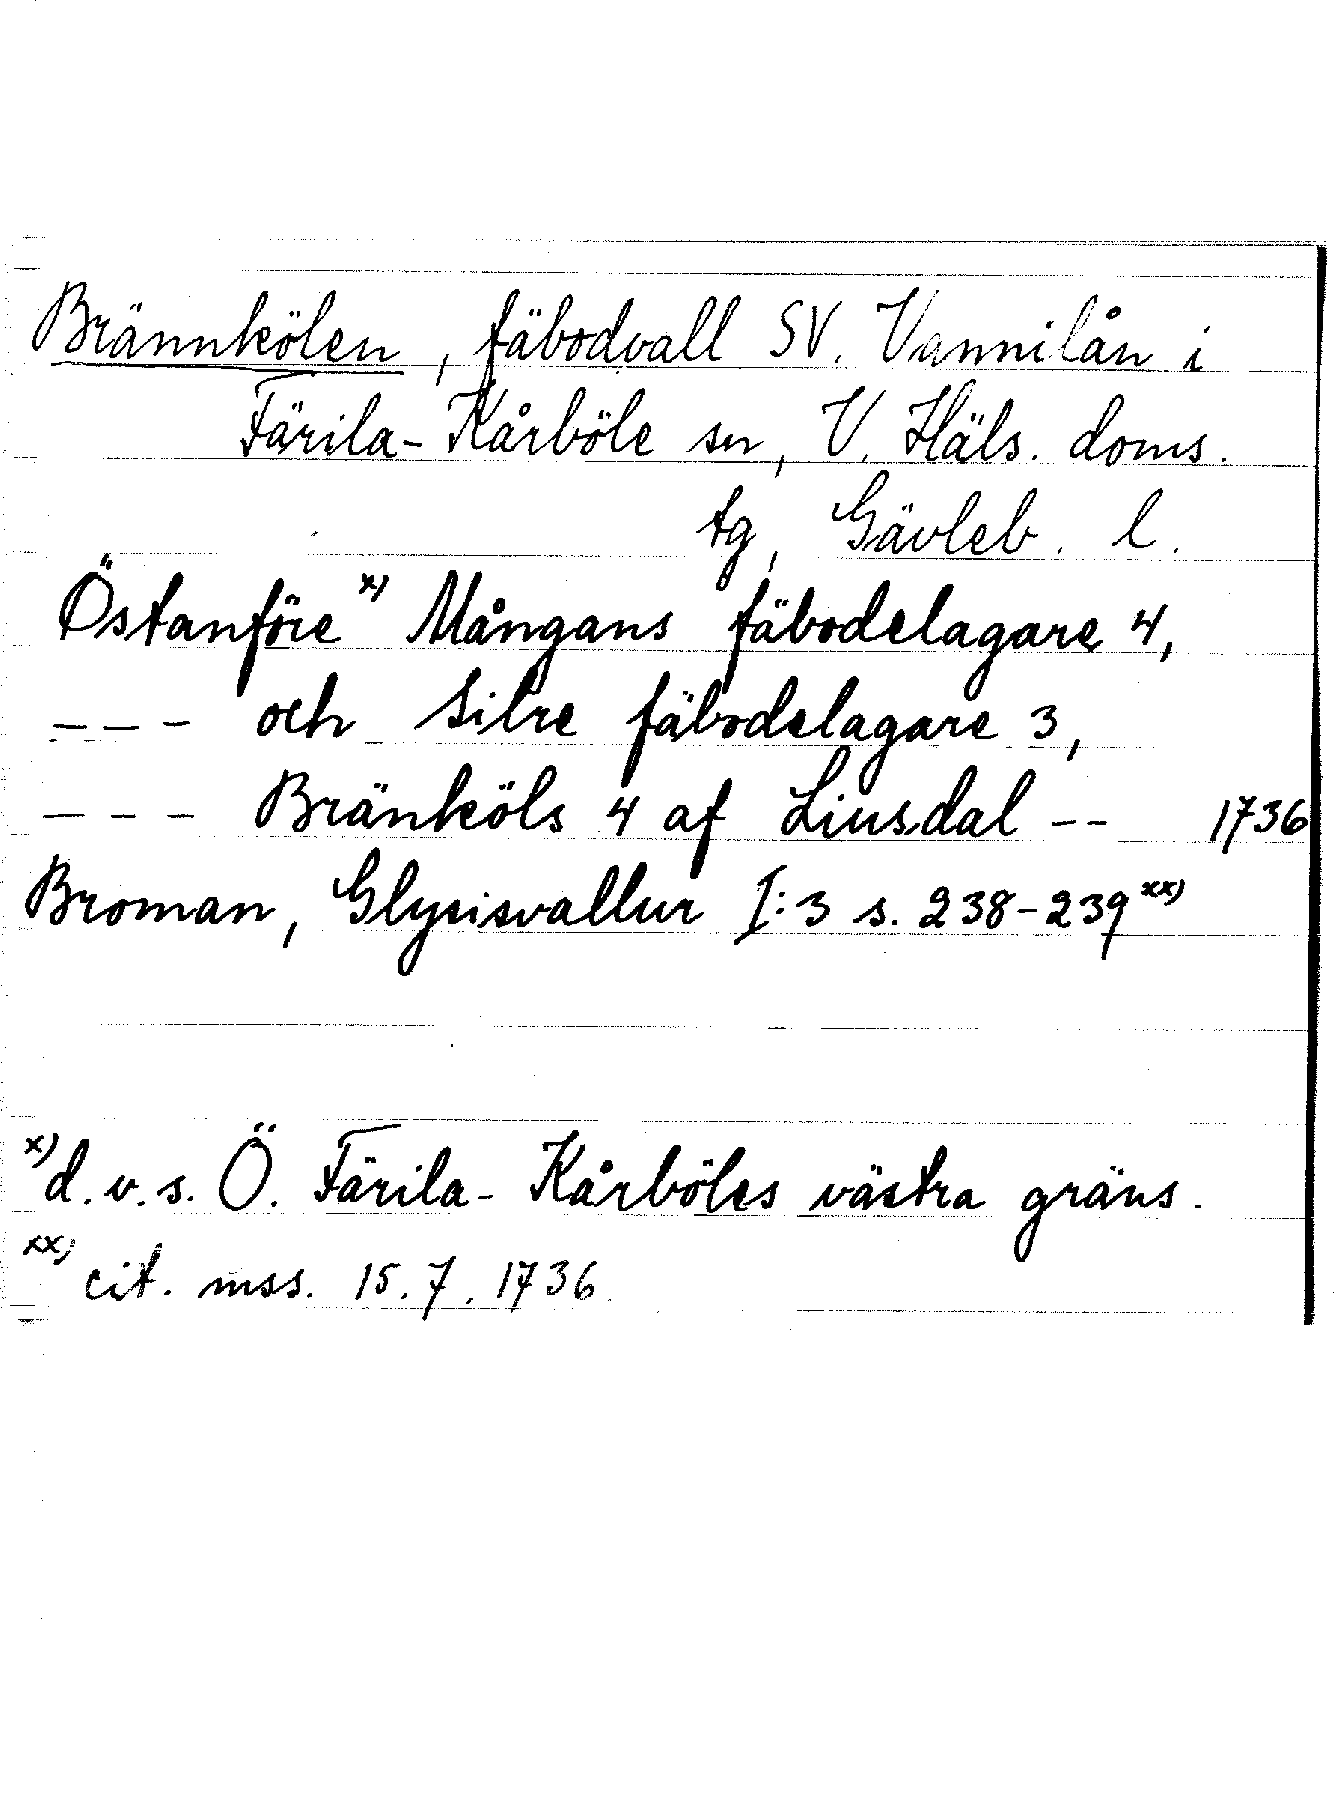 Brännkölen, fäbodvall SV. Vannilån i
Färila-Kårböle sn, V. Häls. doms.
tg, Gävleb. l.
Östanföre x) Mångans fäbodelagare 4,
--- och Silre fäbodelagare 3,
--- Bränköls 4 af Liusdal -- 1736
Broman, Glysisvallur I:3 s. 238-239 xx)
x) d.v.s. Ö. Färila-Kårböles västra gräns.
xx) cit. mss. 15.7.1736.